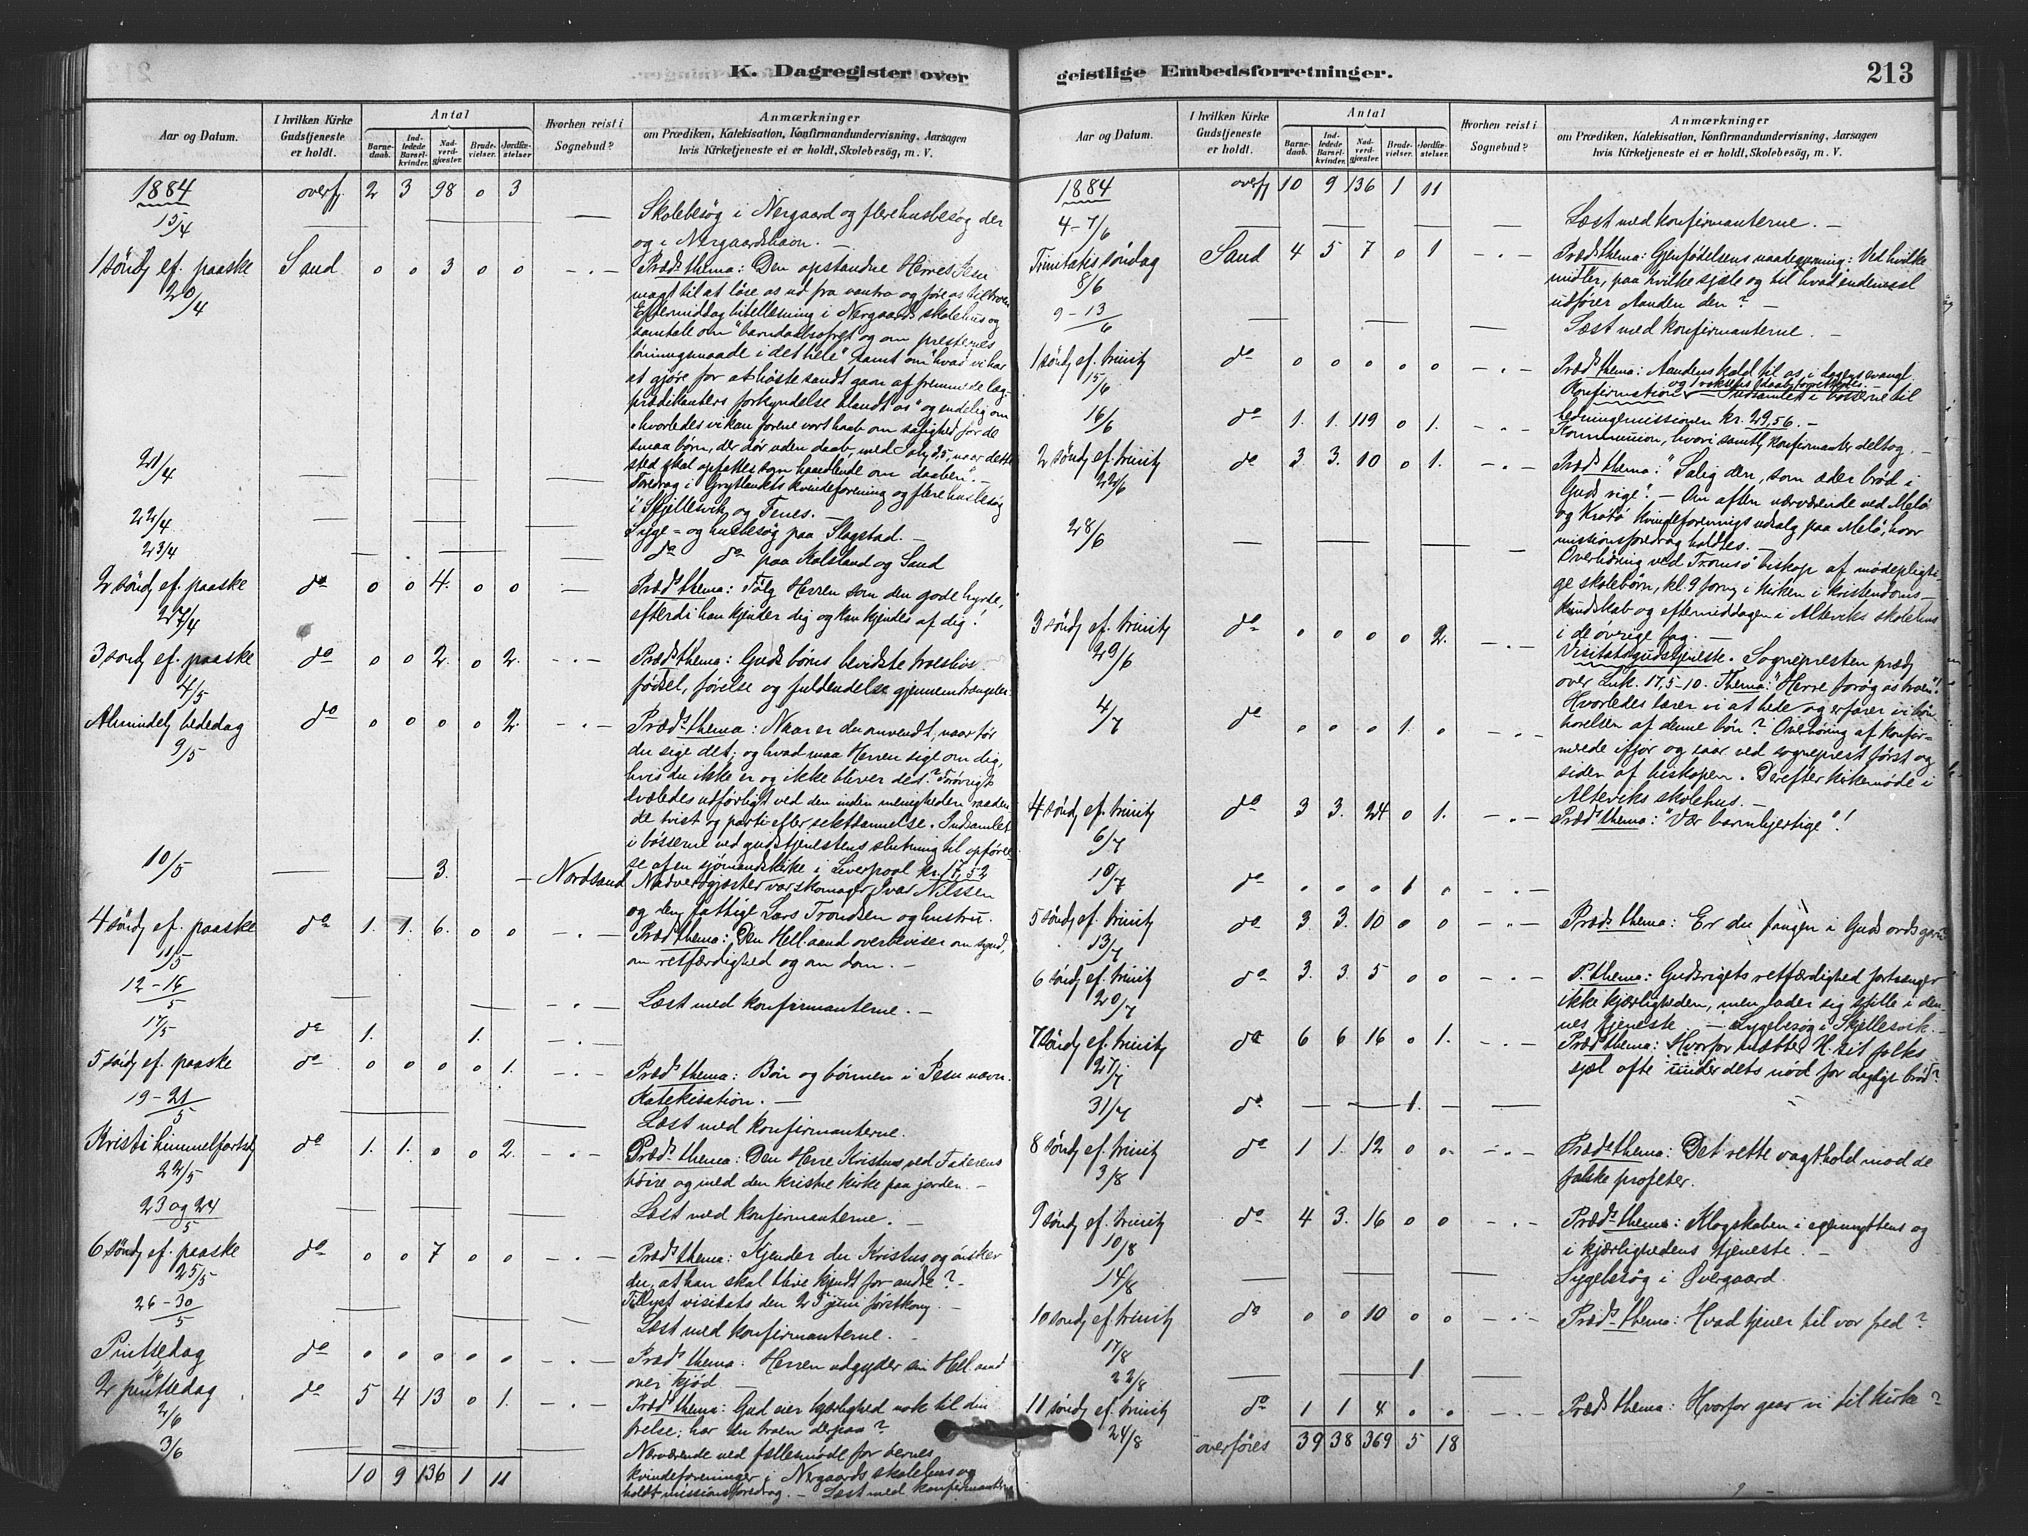 K. Dagregister over
Aar og Datum.
I hvilken Kirke Gudstjeneste er holdt.
Antal
Barne-daab.
Ind-ledede Barsel-kvinder.
Nad-verd-gjæster.
Brude-vielser.
Jordfæ-stelser.
Hvorhen reist i Sognebud?
Anmærkninger
om Prædiken, Katekisation, Konfirmandundervisning, Aarsagen
hvis Kirketjeneste ei er holdt, Skolebesög, m. V.
1884 overf 2 3 98 0 3
15/4 Skolebesøg i Nergaard og flere husbesøg der
og i Nergaardshavn. —
1 sønd ef. paaske Sand 0 0 3 0 0 Præd. thema: Den opstandne Herres Jesu
20/4 magt til at løse os ud fra vantro og føre os til troen
Eftermiddag bibellesning i Nergaards skolehus og
samtale om "barndaabsofret og om presternes
lønningsmaade i det hele" samt om "hvad vi har
at gjøre for at høste sandt gavn af fremmede læg-
prædikanters forkyndelse blandt os" og endelig om
"hvorledes vi kan forene vort haab om salighed for de
smaa børn, der dør uden daab, med Joh. 3,5, naar dette
sted skal opfattes som handlende om daaben". —
21/4 Foredrag i Grytlankts kvindeforening og flere husbesøg
i Skjellesvik og Fenes. —
22/4 Syge- og husbesøg paa Slagstad. —
23/4 do do paa Kalsland og Sand
2 sønd ef. paaske do 0 0 4. 0 0 Præd. thema: Følg Herren som den gode hyrde,
27/4 efterdi han kjender dig og kan kjendes af dig!
3 sønd ef. paaske do 0 0 2. 0 2. Præd. thema: Guds børns bevidste troeslivs
4/5 fødsel, førelse og fuldendelse gjennem trængsler.
Almindelig bededag do 0 0 0 0 2. Præd. thema: Naar er du omvendt, naar tør
9/5 du sige det; og hvad maa Herren sige om dig,
hvis du ikke er og ikke bliver det? Forøvrigt
dvæledes udførligt ved den inden menigheden raaden-
de tvist og parti eller sektdannelse. Indsamlet
i bøsserne ved gudstjenestens slutning til opførel-
se af en sjømandskirke i Liverpool kr. 17,52
10/5 3. Nordsand Nadverdgjæster var skomager Ivar Nilssen
og den fattige Lars Trondsen og hustru.
4 sønd ef. paaske do 1. 1. 6. 0 0 Præd. thema: Den Hell. aand overbeviser om synd,
11/5 om retfærdighed og om dom. —
12-16/5 Læst med konfirmanterne. —
17/5 do 1. 1.
5 sønd ef. paaske do 0 0 0 0 1. Præd. thema: Bøn og bønnen i Jesu navn.
Katekisation. —
19-21/5 Læst med konfirmanterne.
Kristi himmelfartsd do 1. 1. 0 0 2. Præd. thema: Den Herre Kristus ved Faderens
22/5 høire og med den kristne kirke paa jorden. —
23 og 24/5 Læst med konfirmanterne. —
6 sønd ef. paaske do 0 0 7 0 0 Præd. thema: Kjender du Kristus og ønsker
25/5 du, at han skal blive kjendt for andre? —
Tillyst visitats den 29 juni førstkom. —
26-30/5 Læst med konfirmanterne. —
Pintsedag do 0 0 0 0 0 Præd. thema: Herren udgyder sin Hell. aand
1/6 over kjød —
2 pintsedag do 5 4 13 0 1. Præd. thema: Gud eier kjærlighed nok til din
2/6 frelse; har du troen derpaa?
3/6 Nærværende ved fællesmøde for
kvindeforeninger i Nergaards skolehus og
holdt missionsforedrag. — Læst med konfirmanterne
10 9 136 1 11
geistlige Embedsforretninger.
213
Aar og Datum.
I hvilken Kirke Gudstjeneste er holdt.
Antal
Barne-daab.
Ind-ledede Barsel-kvinder.
Nad-verd-gjæster.
Brude-vielser.
Jordfæ-stelser.
Hvorhen reist i Sognebud?
Anmærkninger
om Prædiken, Katekisation, Konfirmandundervisning, Aarsagen
hvis Kirketjeneste ei er holdt, Skolebesög, m. V.
1884 overf 10 9 136 1 11
4-7/6 Læst med konfirmanterne. —
Trinitatis søndag Sand 4 5 7 0 1 Præd. thema: Gjenfødelsens naadegjerning: Ved hvilke
8/6 midler, paa hvilke sjæle og til hvad endemaal
udfører Aanden den? —
9-13/6 Læst med konfirmanterne. —
1 sønd ef. trinit do 0 0 0 0 0 Præd. thema: Aandens kald til os i dagens evangl.
15/6 Konfirmation — Indsamlet i bøsserne til
hedningemissionen kr. 29,56. —
16/6 do 1. 1. 119 0 1. Kommunion, hvori samtl. konfirmanter deltog. —
2 sønd ef. trinit do 3. 3. 10 0 1. Præd. thema: "Salig den, som æder brød i
22/6 Guds rige". — Om aften nærværende ved Melø
og Krøtø kvindeforenings udsalg paa Melø, hvor
missionsforedrag holdtes.
28/6 Overhøring ved Tromsø biskop af mødepligti-
ge skolebørn, kl. 9 form. i kirken i kristendoms-
kundskab og eftermiddagen i Alteviks skolehus
i de øvrige fag. —
3 sønd ef. trinit do 0 0 0 0 2. Visitatsgudstjeneste. Sognepresten præd.
29/6 over Luk. 17,5-10. Thema: "Herre forøg os troen".
Hvorledes lærer vi at bede og erfarer vi bøn-
hørelsen af denne bøn? Overhøring af konfir-
4/7 do 0 0 0 1. 0 merede ifjor og iaar ved sogneprest først og
siden af biskopen. Derefter kirkemøde i
Alteviks skolehus. —
4 sønd ef. trinit do 3 3. 24 0 1. Præd. thema: "Vær barmhjertige"!
6/7
10/7 do 0 0 0 1 0
5 sønd ef. trinit do 3. 3. 10 0 0 Præd. thema: Er du fangen i Guds ords garn?
13/7
6 sønd ef. trinit do 3. 3. 5 0 0 P. thema: Gudsrigets retfærdighed fortrænger
20/7 ikke kjærligheden, men lader sig stille i den-
nes tjeneste — Sygebesøg i Skjellesvik. —
7 sønd ef. trinit do 6 6 16 0 1. Præd. thema: Hvorfor mætter H. sit folks
27/7 sjæl ofte under dets nød for dagligt brød?
31/7 do 1.
8 sønd ef. trinit do 1 1. 12 0 0 Præd. thema: Det rette vagthold mod de
3/8 falske profeter.
9 sønd ef. trinit do 4 3. 16 0 0 Præd. thema: Klogskaben i egennyttens og
10/8 i kjærlighedens tjeneste. —
14/8 Sygebesøg i Øvergaard.
10 sønd ef. trinit do 0 0 10 0 0 Præd. thema: Hvad tjener til vor fred?
17/8
22/8 1
11 sønd ef. trinit do 1 1 4 0 0. Præd. thema: Hvorfor gaar vi til kirke?
24/8 overføres 39 38 369 5 18